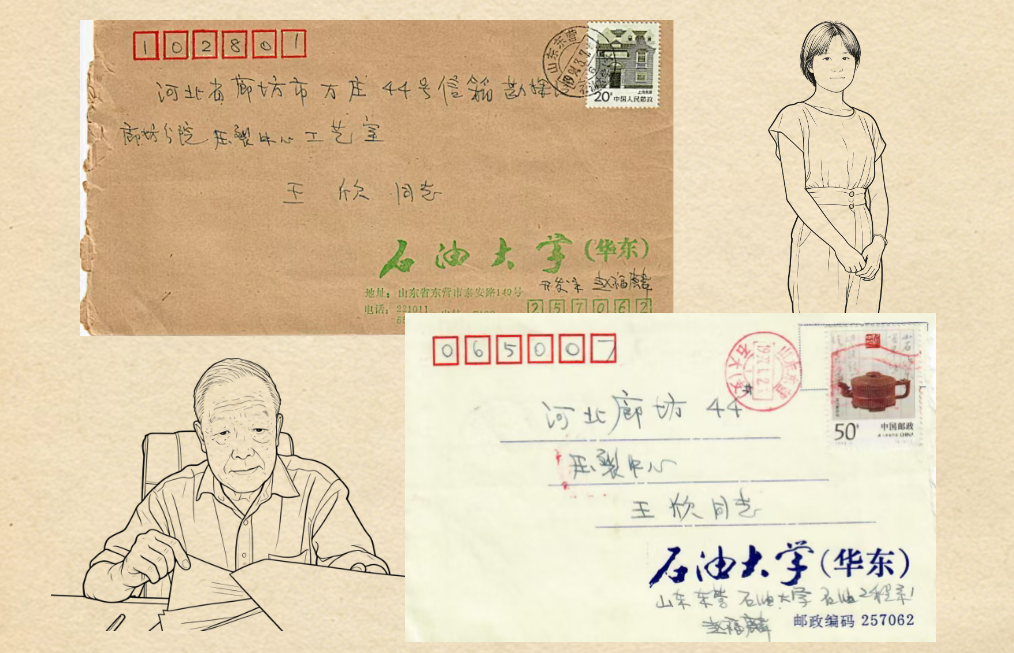 102801
河北省廊坊市万庄44号信箱勘探
廊坊分院压裂中心工艺室
王欣同志
山东东营
20分 中国人民邮政
石油大学(华东)
开发系 赵福麟
地址:山东省东营市泰安路149号
电话:
257062
065007
河北廊坊44#
压裂中心
王欣同志
50分 中国邮政
CHINA
石油大学(华东)
山东东营石油大学石油工程系
赵福麟 邮政编码 257062